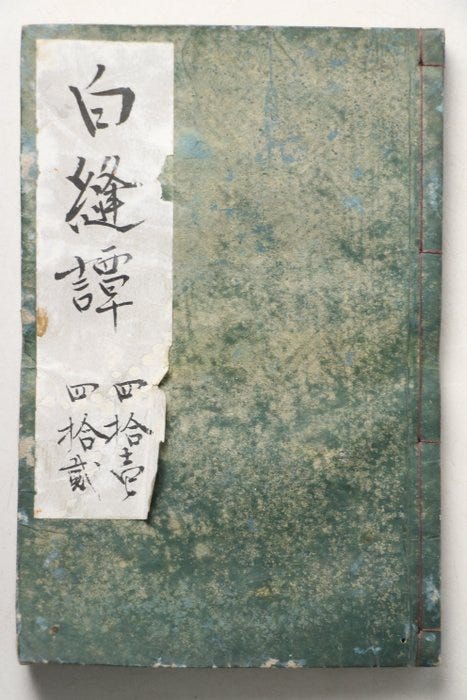 白縫譚
四拾壱
四拾貳